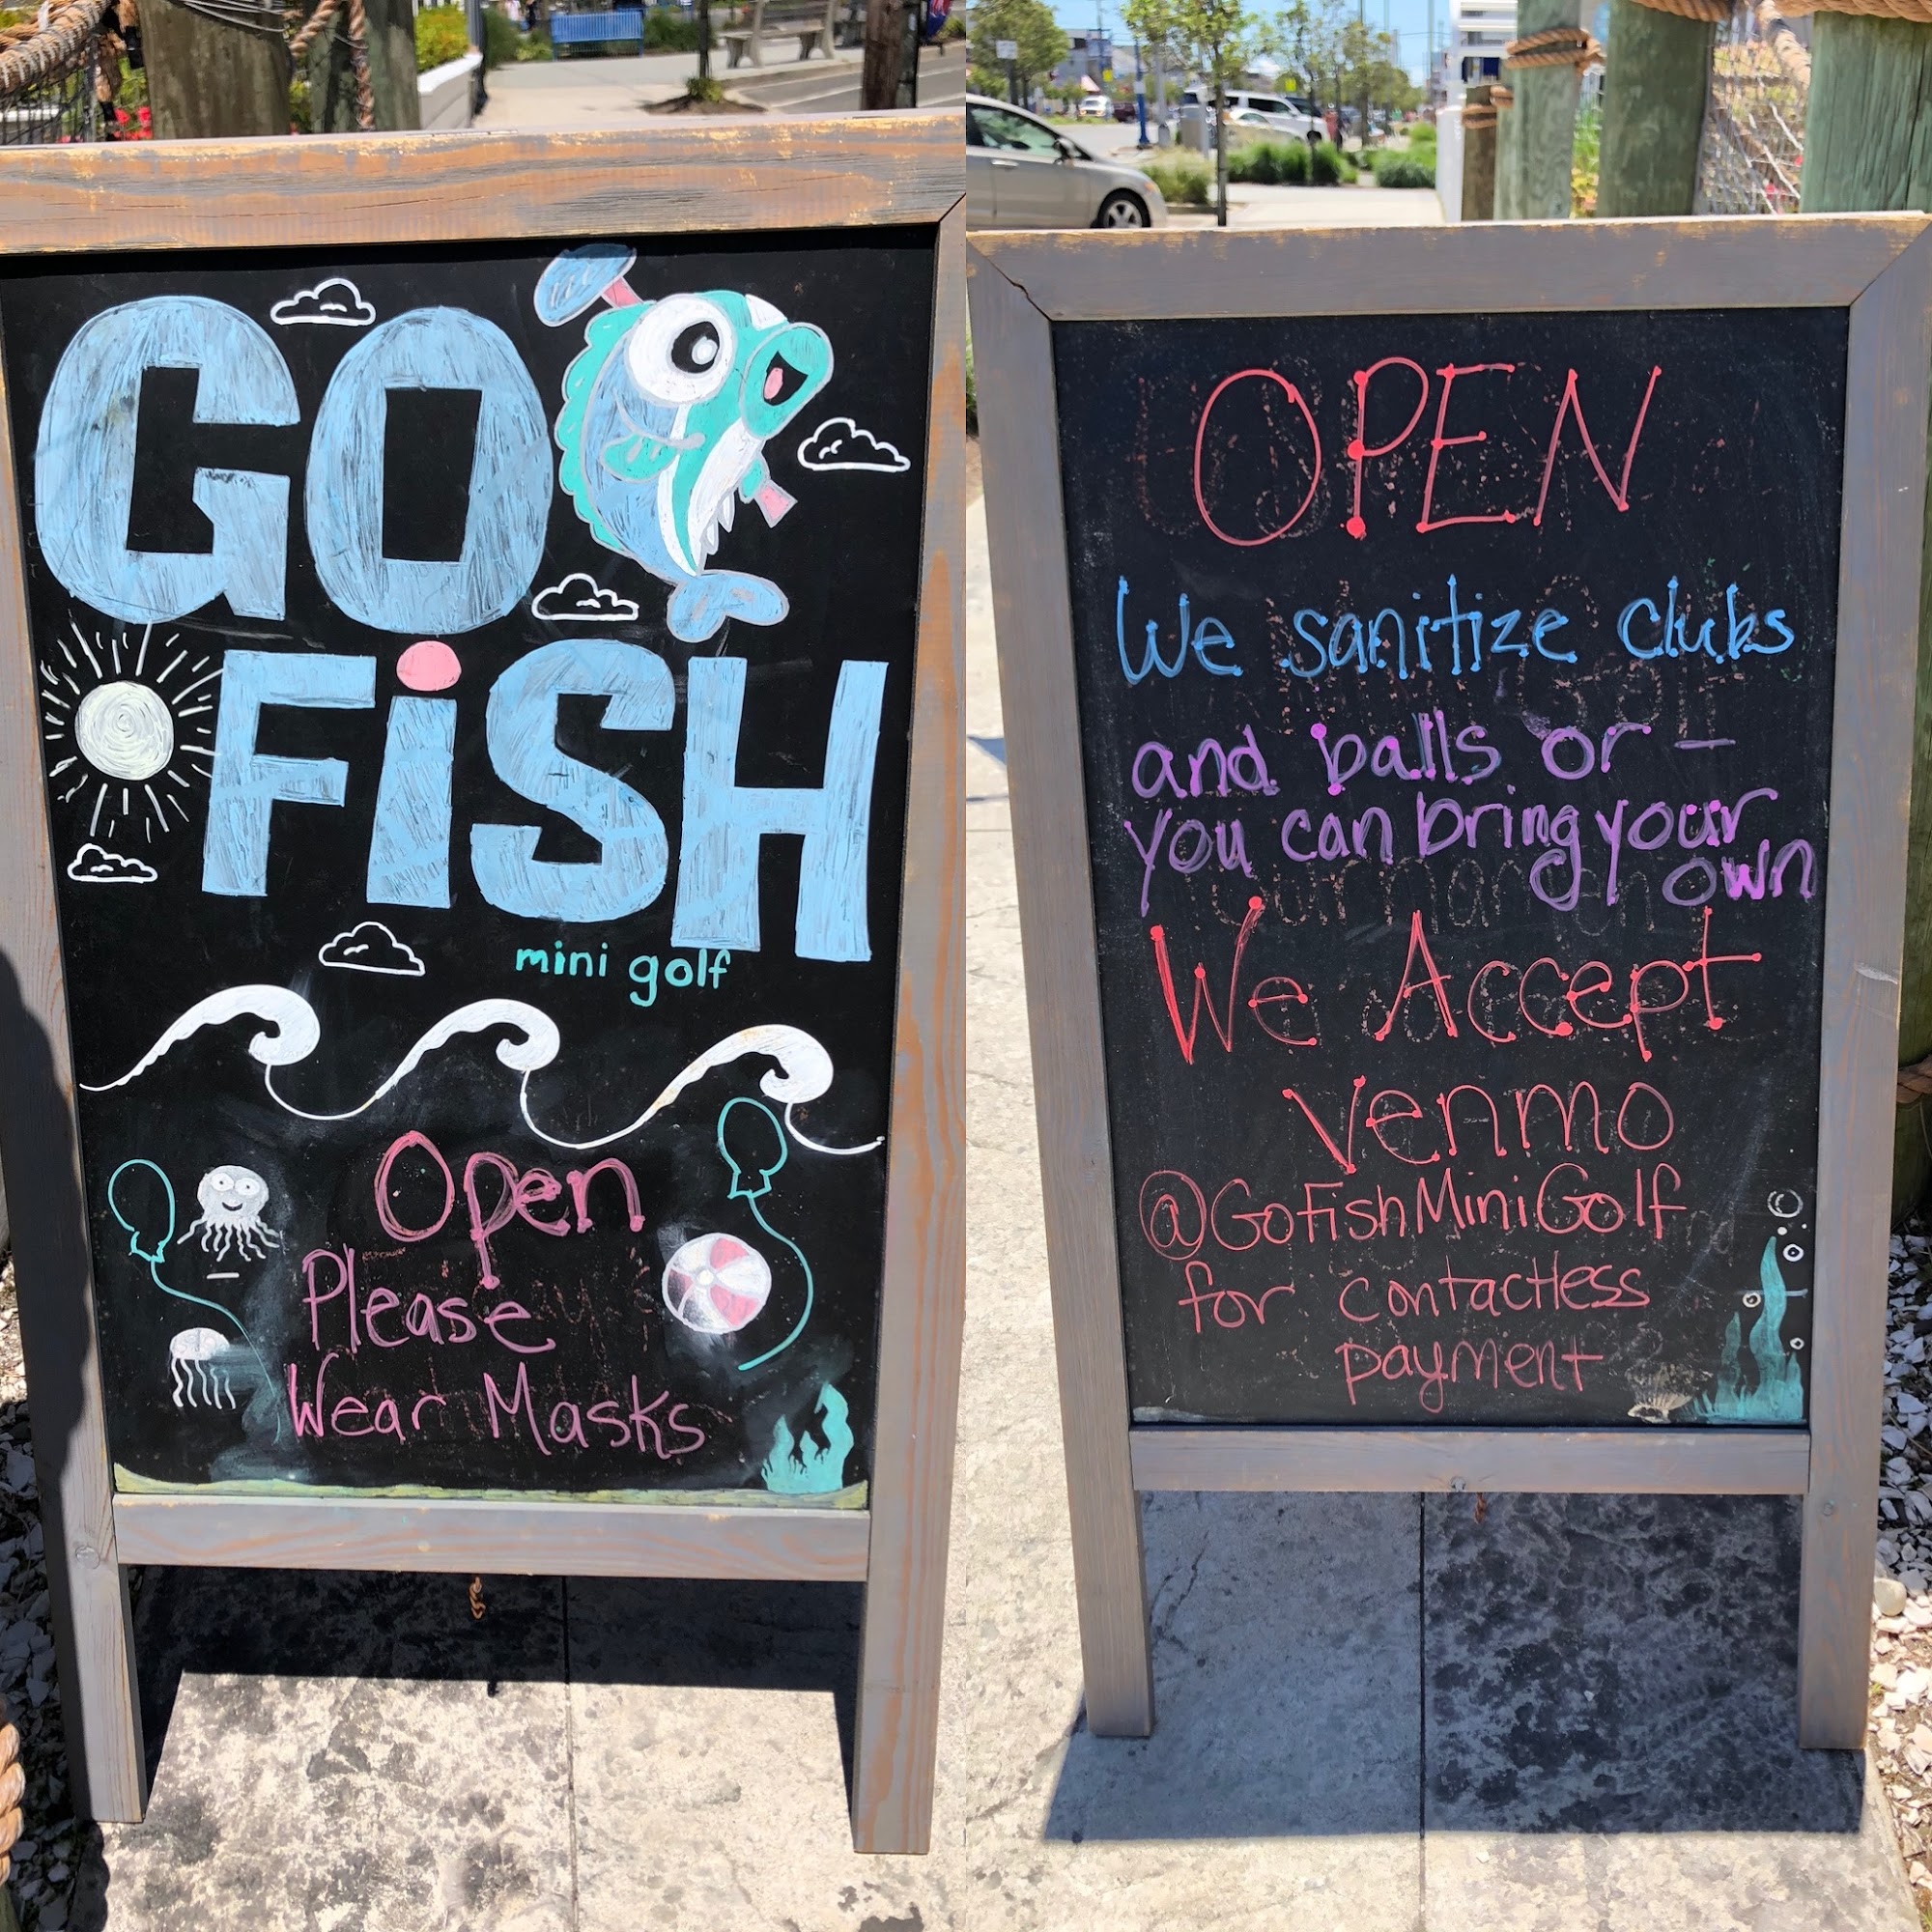 GO
FiSH
mini golf
Open
Please
Wear Masks
OPEN
We sanitize clubs
and balls or —
you can bring your
own
We Accept
venmo
@GoFishMiniGolf
for contactless
payment